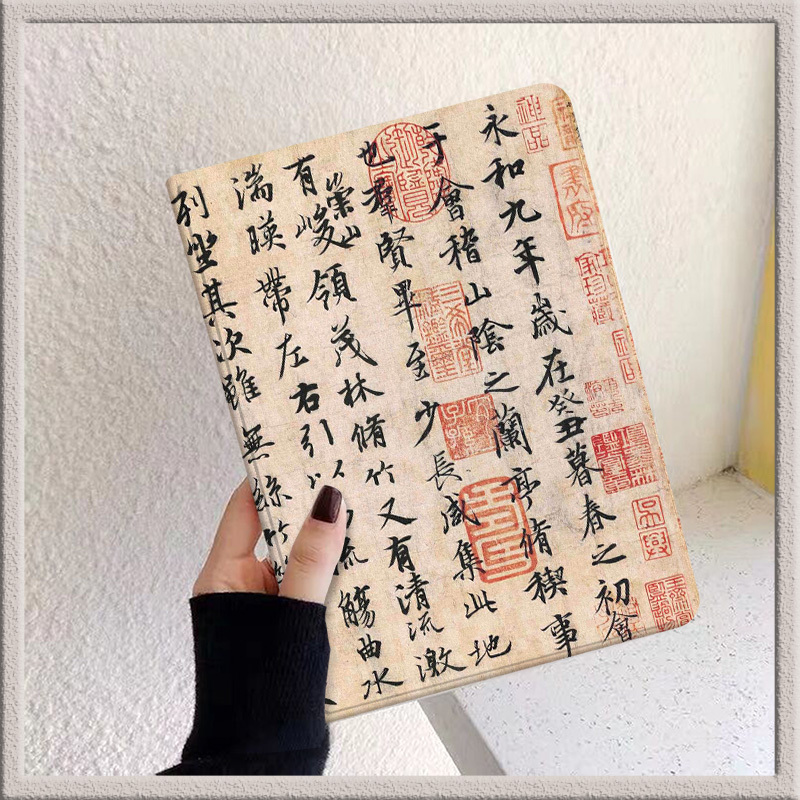 永和九年歲在癸丑暮春之初會
于會稽山陰之蘭亭脩稧事
也羣賢畢至少長咸集此地
有崇山峻領茂林脩竹又有清流激
湍暎帶左右引以流觴曲水
列坐其次雖無絲竹
神品
三希堂精鑑璽
宜子孫
吳興